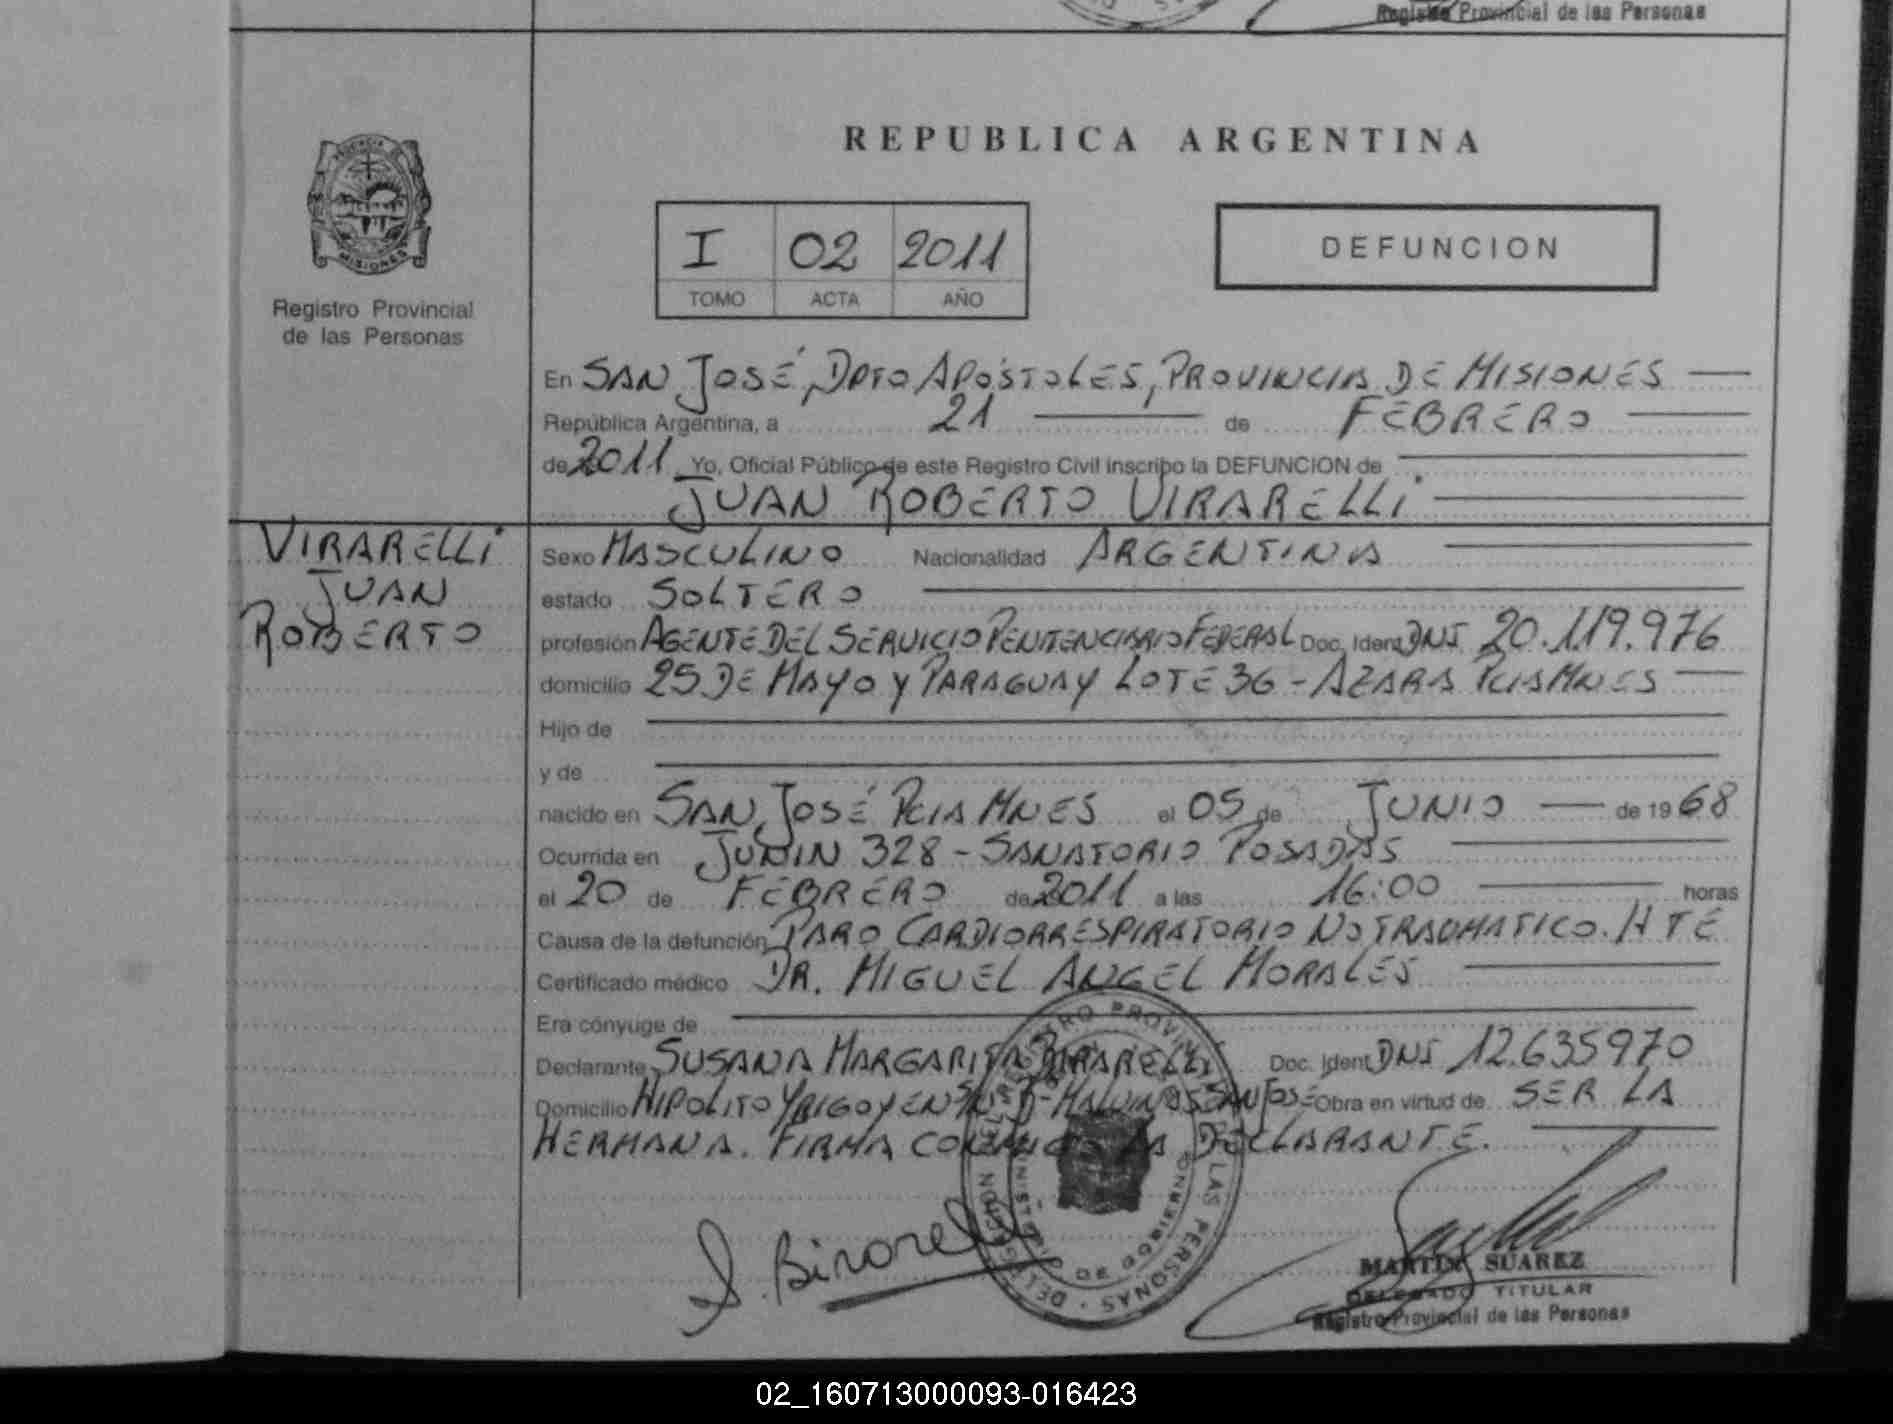 Registro Provincial de las Personas
REPUBLICA ARGENTINA
PROVINCIA DE
MISIONES
Registro Provincial
de las Personas
I 02 2011
TOMO ACTA AÑO
DEFUNCION
En SAN JOSÉ, DPTO APÓSTOLES, PROVINCIA DE MISIONES
República Argentina, a 21 de FEBRERO
de 2011 Yo, Oficial Público de este Registro Civil inscribo la DEFUNCION de
JUAN ROBERTO VIRARELLI
VIRARELLI
JUAN
ROBERTO
Sexo MASCULINO Nacionalidad ARGENTINA
estado SOLTERO
profesión AGENTE DEL SERVICIO PENITENCIARIO FEDERAL Doc. Ident. DNI 20.119.976
domicilio 25 DE MAYO Y PARAGUAY LOTE 36 - AZARA PCIA MNES
Hijo de
y de
nacido en SAN JOSÉ PCIA MNES el 05 de JUNIO de 1968
Ocurrida en JUNIN 328 - SANATORIO POSADAS
el 20 de FEBRERO de 2011 a las 16:00 horas
Causa de la defunción PARO CARDIORRESPIRATORIO NO TRAUMATICO. HTE
Certificado médico DR. MIGUEL ANGEL MORALES
Era cónyuge de
Declarante SUSANA MARGARITA Doc. Ident. DNI 12.635970
Domicilio HIPOLITO YRIGOYEN S/N Bº MALVINAS SAN JOSÉ Obra en virtud de SER LA
HERMANA. FIRMA CONMIGO LA DECLARANTE.
S. Birarelli
REGISTRO PROVINCIAL DE LAS PERSONAS
MINISTERIO DE GOBIERNO
MARTIN SUAREZ
DELEGADO TITULAR
Registro Provincial de las Personas
02_160713000093-016423